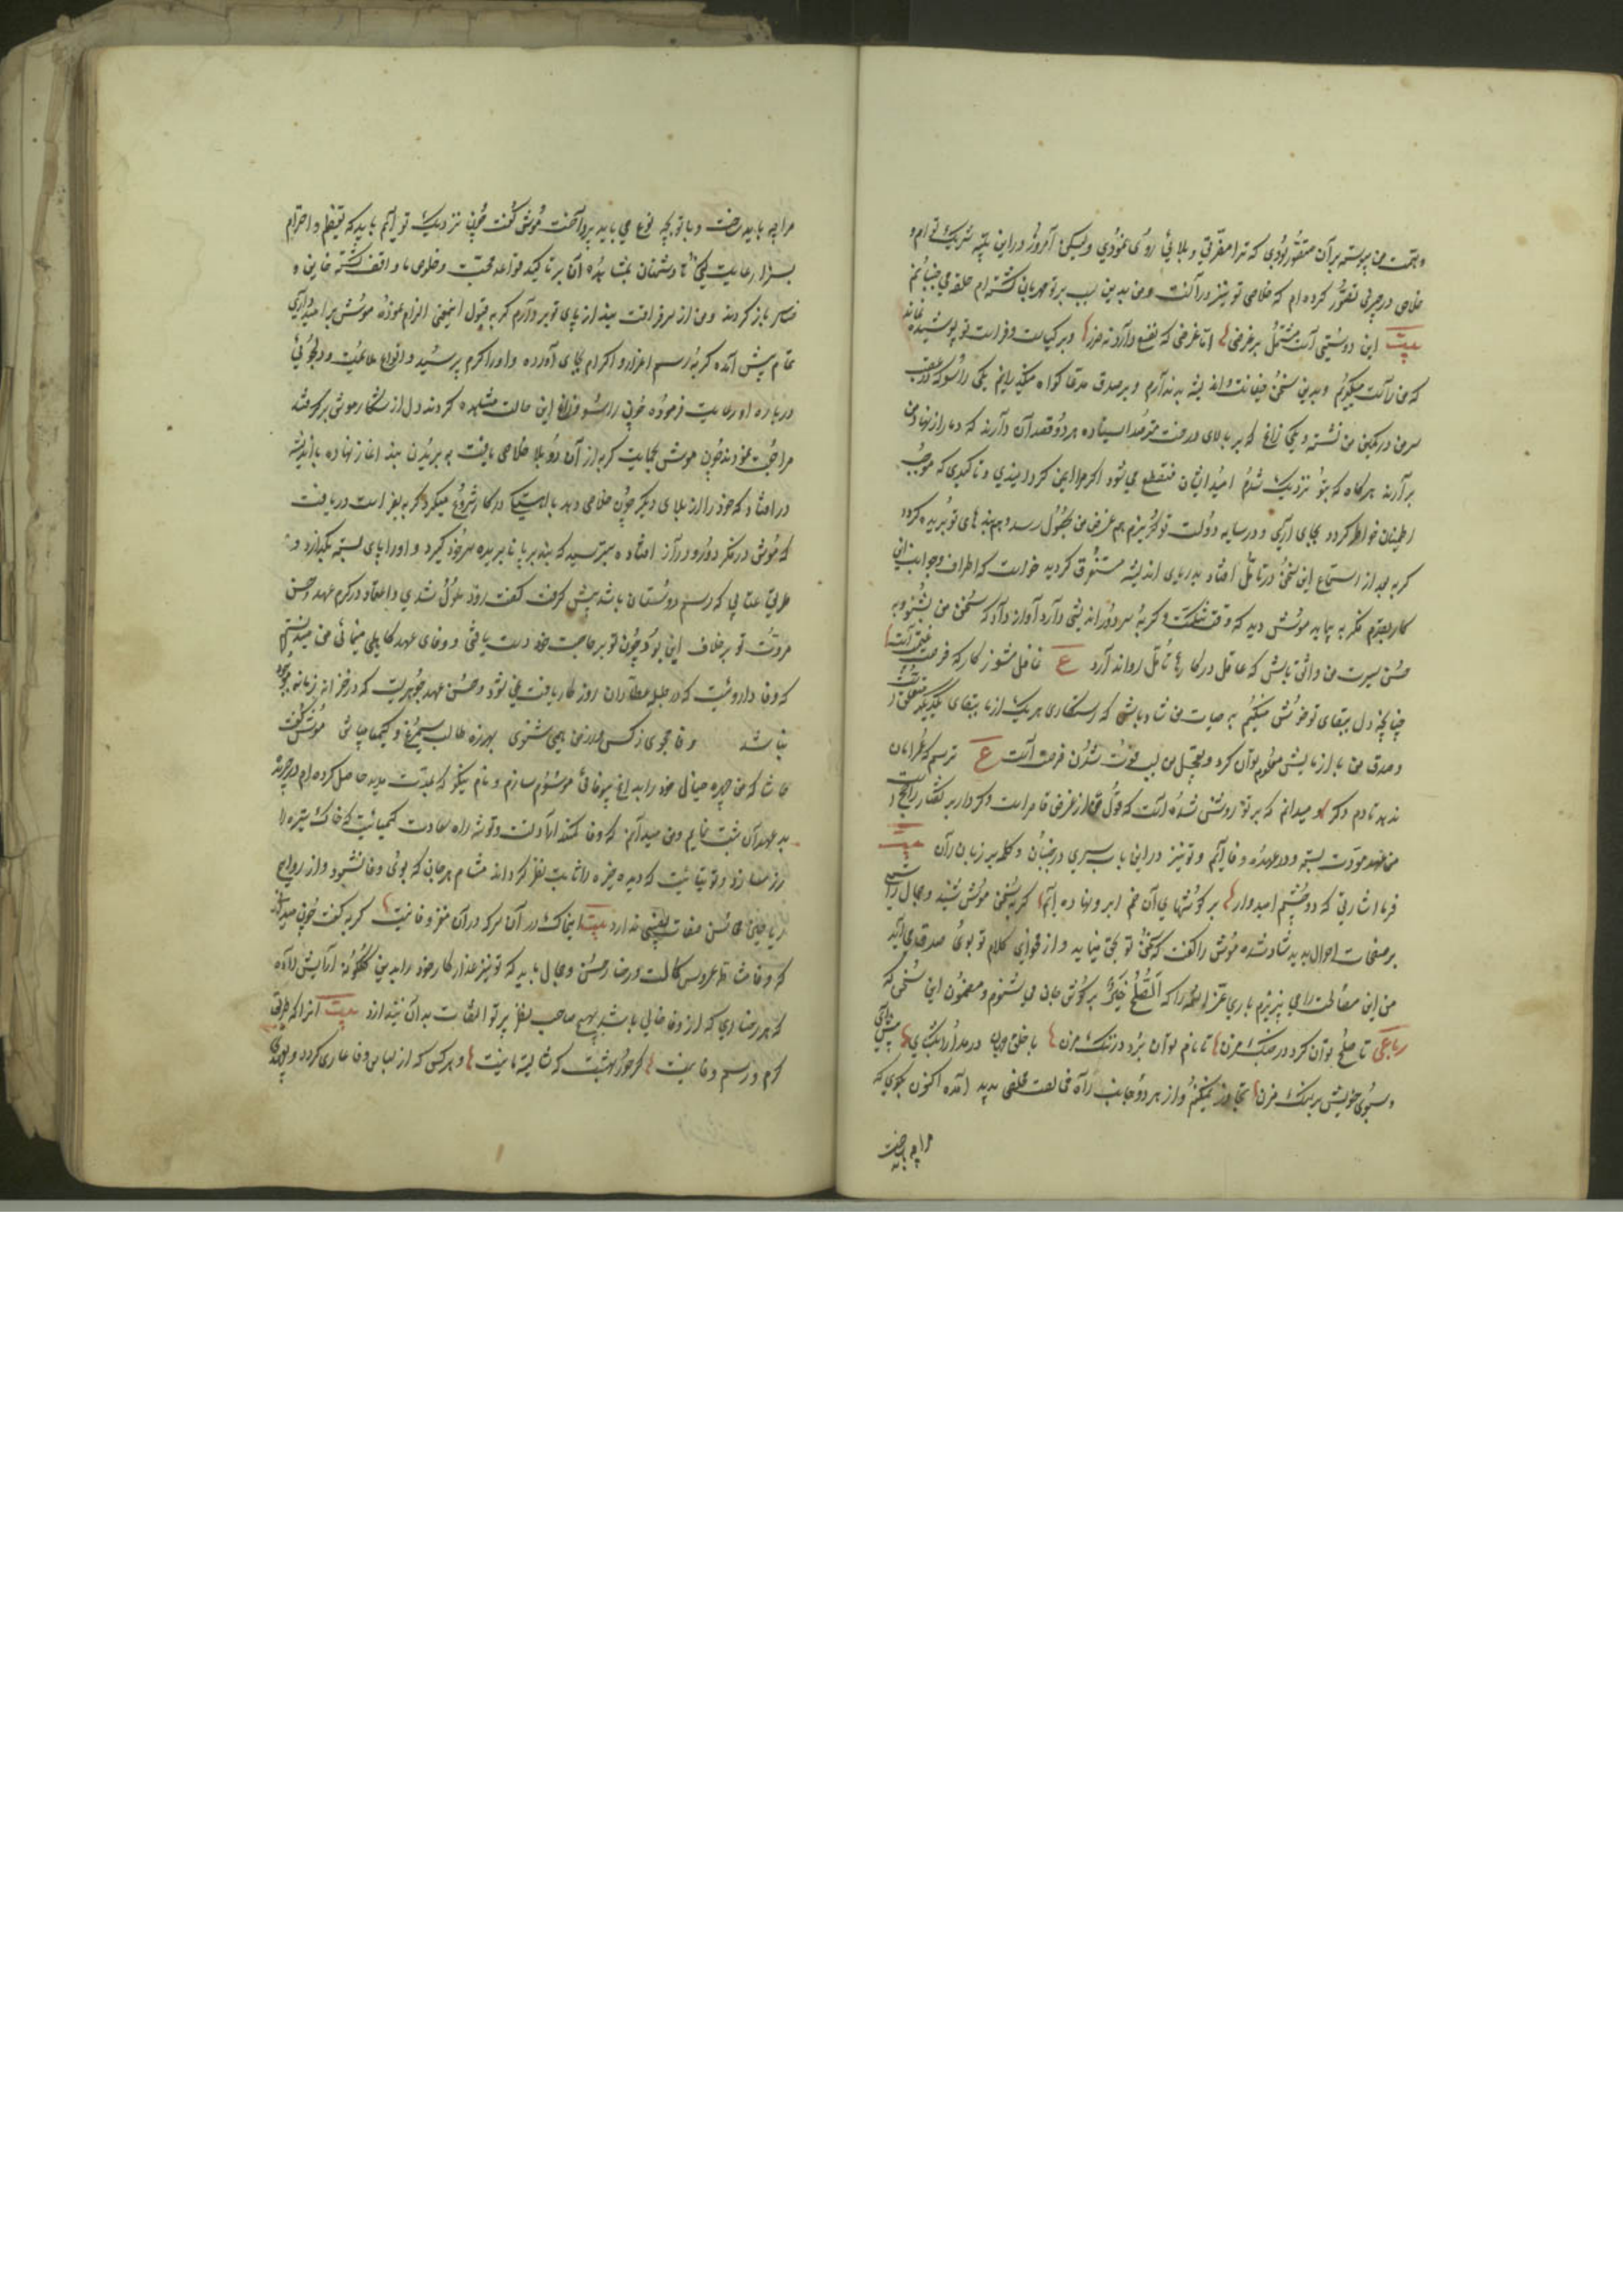 و همت من پیوسته بر آن مقصور بودی که ترا مضرتی و بلائی روی نمودی ولیکن امروز در این بلیه شریک توام و
خلاصی در چیزی تصور کرده ام که خلاصی تو نیز در آنست و من بدین سبب بر تو مهربان گشته ام حلقه می جنبانم
بیت این دوستی است مشتمل بر غرضی اما غرضی که نفع دارد نه ضرر و بر کیاست و فراست تو پوشیده نماند
که من راست میگویم و بدین سخن خیانت و اندیشه بد ندارم و بر صدق مدعا گواه میگذرانم یکی راسو که در عقب
من در کمین من نشسته و یکی زاغ که بر بالای درخت مترصد ایستاده هر دو قصد آن دارند که دمار از نهاد من
بر آرند هرگاه که بتو نزدیک شدم امید ایشان منقطع می شود اگر مرا ایمن گردانیدی و تاکیدی که موجب
اطمینان خاطر گردد بجای آری و در سایه دولت تو گریزم هم غرض من بحصول رسد و هم بند های تو بریده گردد
گربه بعد از استماع این سخن در تامل افتاد بدریای اندیشه مستغرق گردید خواست که اطراف و جوانب این
کار بقدم فکر به پیماید موش دید که وقت تنگست و گربه سر دور اندیشی دارد آواز داد که سخن من بشنو و بر
حسن سیرت من واثق باش که عاقل در کار ها تامل روا ندارد ع غافل منشو ز کار که فرصت غنیمت است
چنانچه دل ببقای تو خوش میکنم به حیات من شاد باش که رستگاری هر یک از ما ببقای یکدیگر متعلق است
و صدق من بازمایش معلوم توان کرد و تعجیل من بسبب فوت شدن فرصت است ع ترسم که امان
ندهد تا دم دگر و میدانم که بر تو روشن شده است که قول من از غرض قاصر است و کردار بر گفتار راجح و
من عهد مودت بسته و در عهده وفا آیم و تو نیز در این باب سری در جنبان و کلمه بر زبان ران بیت
فرما اشارتی که دو چشم امیدوار بر گوشهای آن خم ابرو نهاده ایم گربه سخن موش شنید و جمال راستی
بر صفحات احوال پدید شاد شده موش را گفت که سخن تو بحق مینماید و از فحوای کلام تو بوی صدق می آید
من این مصالحت را می پذیرم باری عز اسمه را که الصلح خیر بر گوش جان می شنوم و مضمون این سخن که
رباعی تا صلح توان کرد در جنگ مزن تا نام توان برد در ننگ مزن با خلق جهان در مدارا بگشای پیش آی
و سبوی خویش بر سنگ مزن تجاوز نمیکنم و از هر دو جانب راه مخالصت خلقی پدید آمده اکنون بگوی که
مرا چه باید ساخت
مرا چه باید ساخت و با تو بچه نوع می باید پرداخت موش گفت چون نزدیک تو آیم باید که تعظیم و احترام
بسزا رعایت کنی تا دشمنان بمشاهده آن بر تاکید قواعد محبت و خلوص ما واقف گشته خایب و
خاسر باز گردند و من از سر فراغت بند از پای تو بردارم گربه قبول اینمعنی الزام نموده موش پر امیدواری
تمام پیش آمده گربه رسم اعزاز و اکرام بجای آورده و او را گرم پرسید و انواع ملاطفت و دلجوئی
در باره او رعایت فرموده چون راسو و زاغ این حالت مشاهده کردند دل از شکار موش برگرفته
مراجعت نمودند چون موش بحمایت گربه از آن دو بلا خلاصی یافت به بریدن بند اغاز نهاد و باندیشه
در افتاد که خود را از بلای دیگر چون خلاصی دهد باهستگی در کار شروع میکرد گربه بفراست دریافت
که موش در فکر دور و دراز افتاده بترسید که بند بر پا نابریده سر خود گیرد و او را پای بسته بگذارد و
طریق عتابی که رسم دوستان باشد پیش گرفت گفت زود ملول شدی و اعتقاد در کرم عهد و حسن
مروت تو برخلاف این بود چون تو بر حاجت خود دست یافتی و وفای عهد کاهلی مینمائی من میدانستم
که وفا داروئیست که در طبله عطاران روزگار یافت نمی شود و حسن عهد جوهریست که در خزانه زمانه موجود
نباشد وفا مجوی ز کس ور سخن نمی شنوی بهرزه طالب سیمرغ و کیمیا میباش موش گفت
حاشا که من چهره حیال خود را بداغ بیوفائی موسوم سازم و نام نیکو که بمدت مدید حاصل کرده ام در جریده
بد عهدان ثبت نمایم و من میدانم که وفا کمند امادتست و توشه راه سعادت کیمیائیست که خاک تیره را
زر سازد و توتیائیست که دیده خیره را ثابت نظر گرداند مشام هر جان که بوی وفا نشنود و از روایح
ریاحین محاسن صفات نصیبی ندارد بیت خاک در آن سر که در آن مغز وفا نیست گربه گفت چون میدانی
که وفا مشاطه عروس کمالست و رخسار حسن و جمال باید که تو نیز عذار کار خود را بدین گلگونه آرایش داده
که هر رخساری که از وفا خالی باشد هیچ صاحب نظر پرتو التفات بدان نیندازد بیت انرا که طریق
کرم و رسم وفا نیست گر حور بهشتست که شایسته ما نیست و هر کس که از لباس وفا عاری گردد و بعهدی